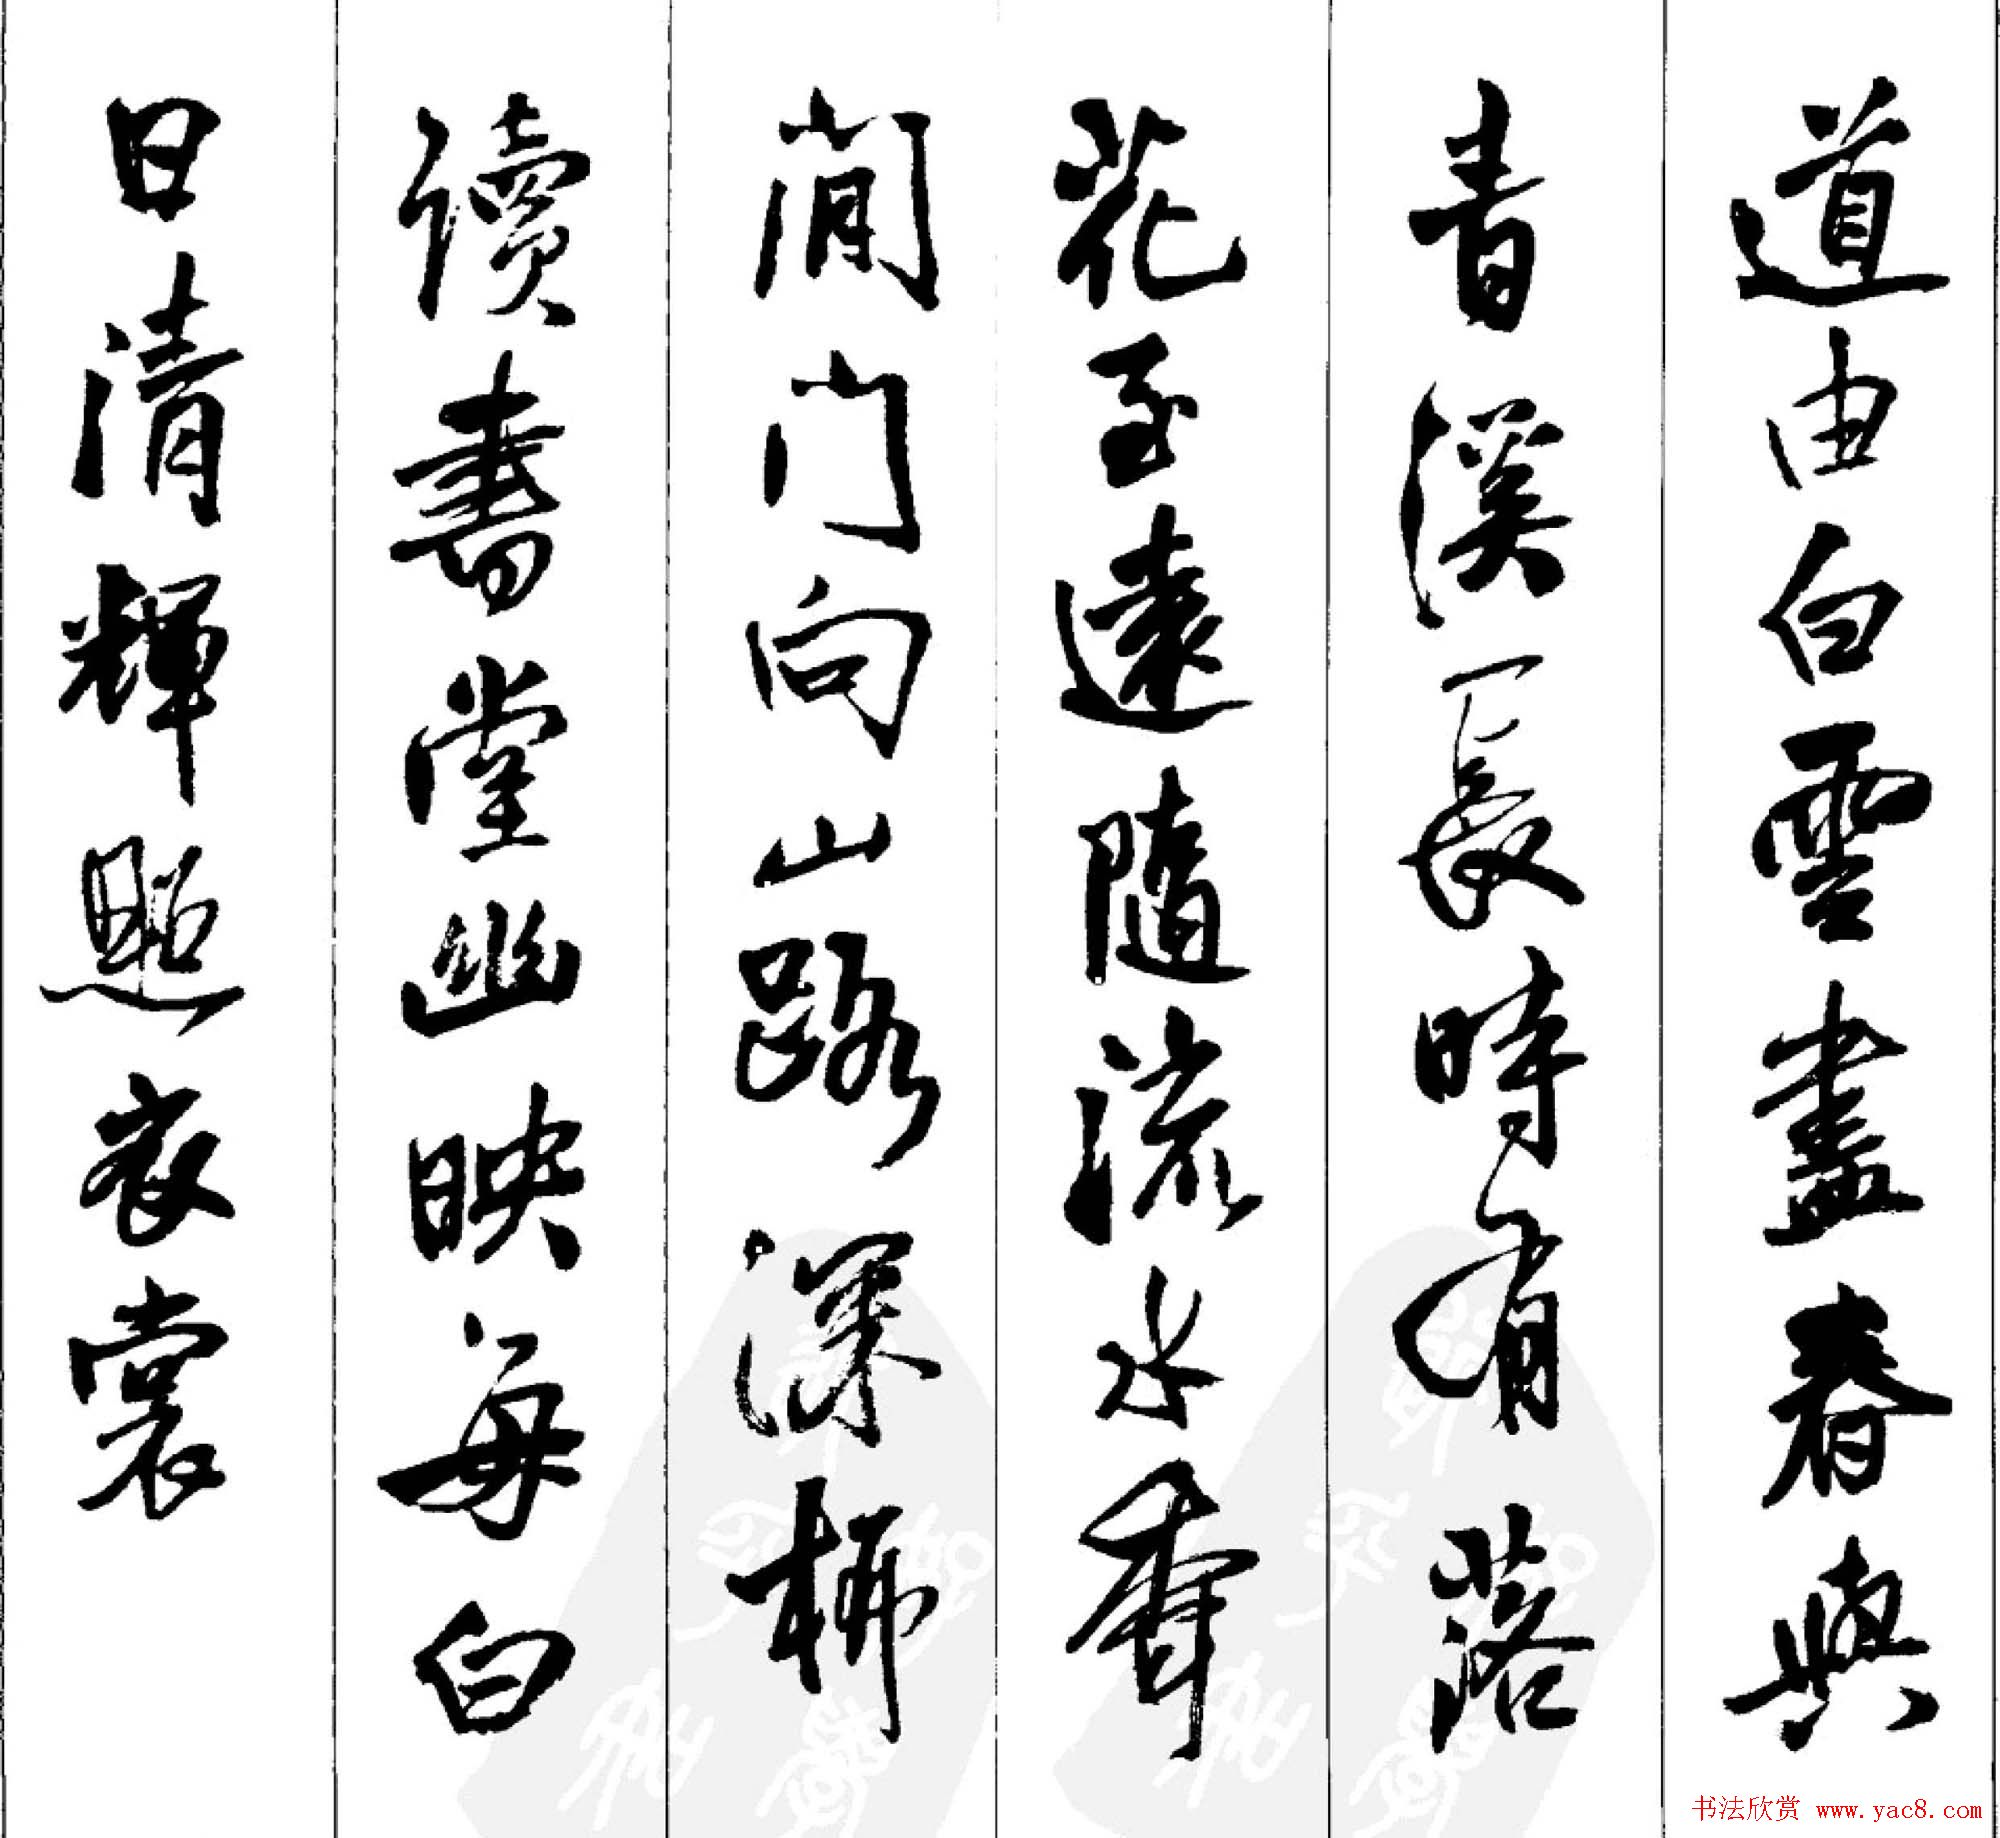 道由白雲盡春與
青溪長時有落
花至遠隨流水香
閒門向山路深柳
讀書堂幽映每白
日清輝照衣裳
书法欣赏 www.yac8.com